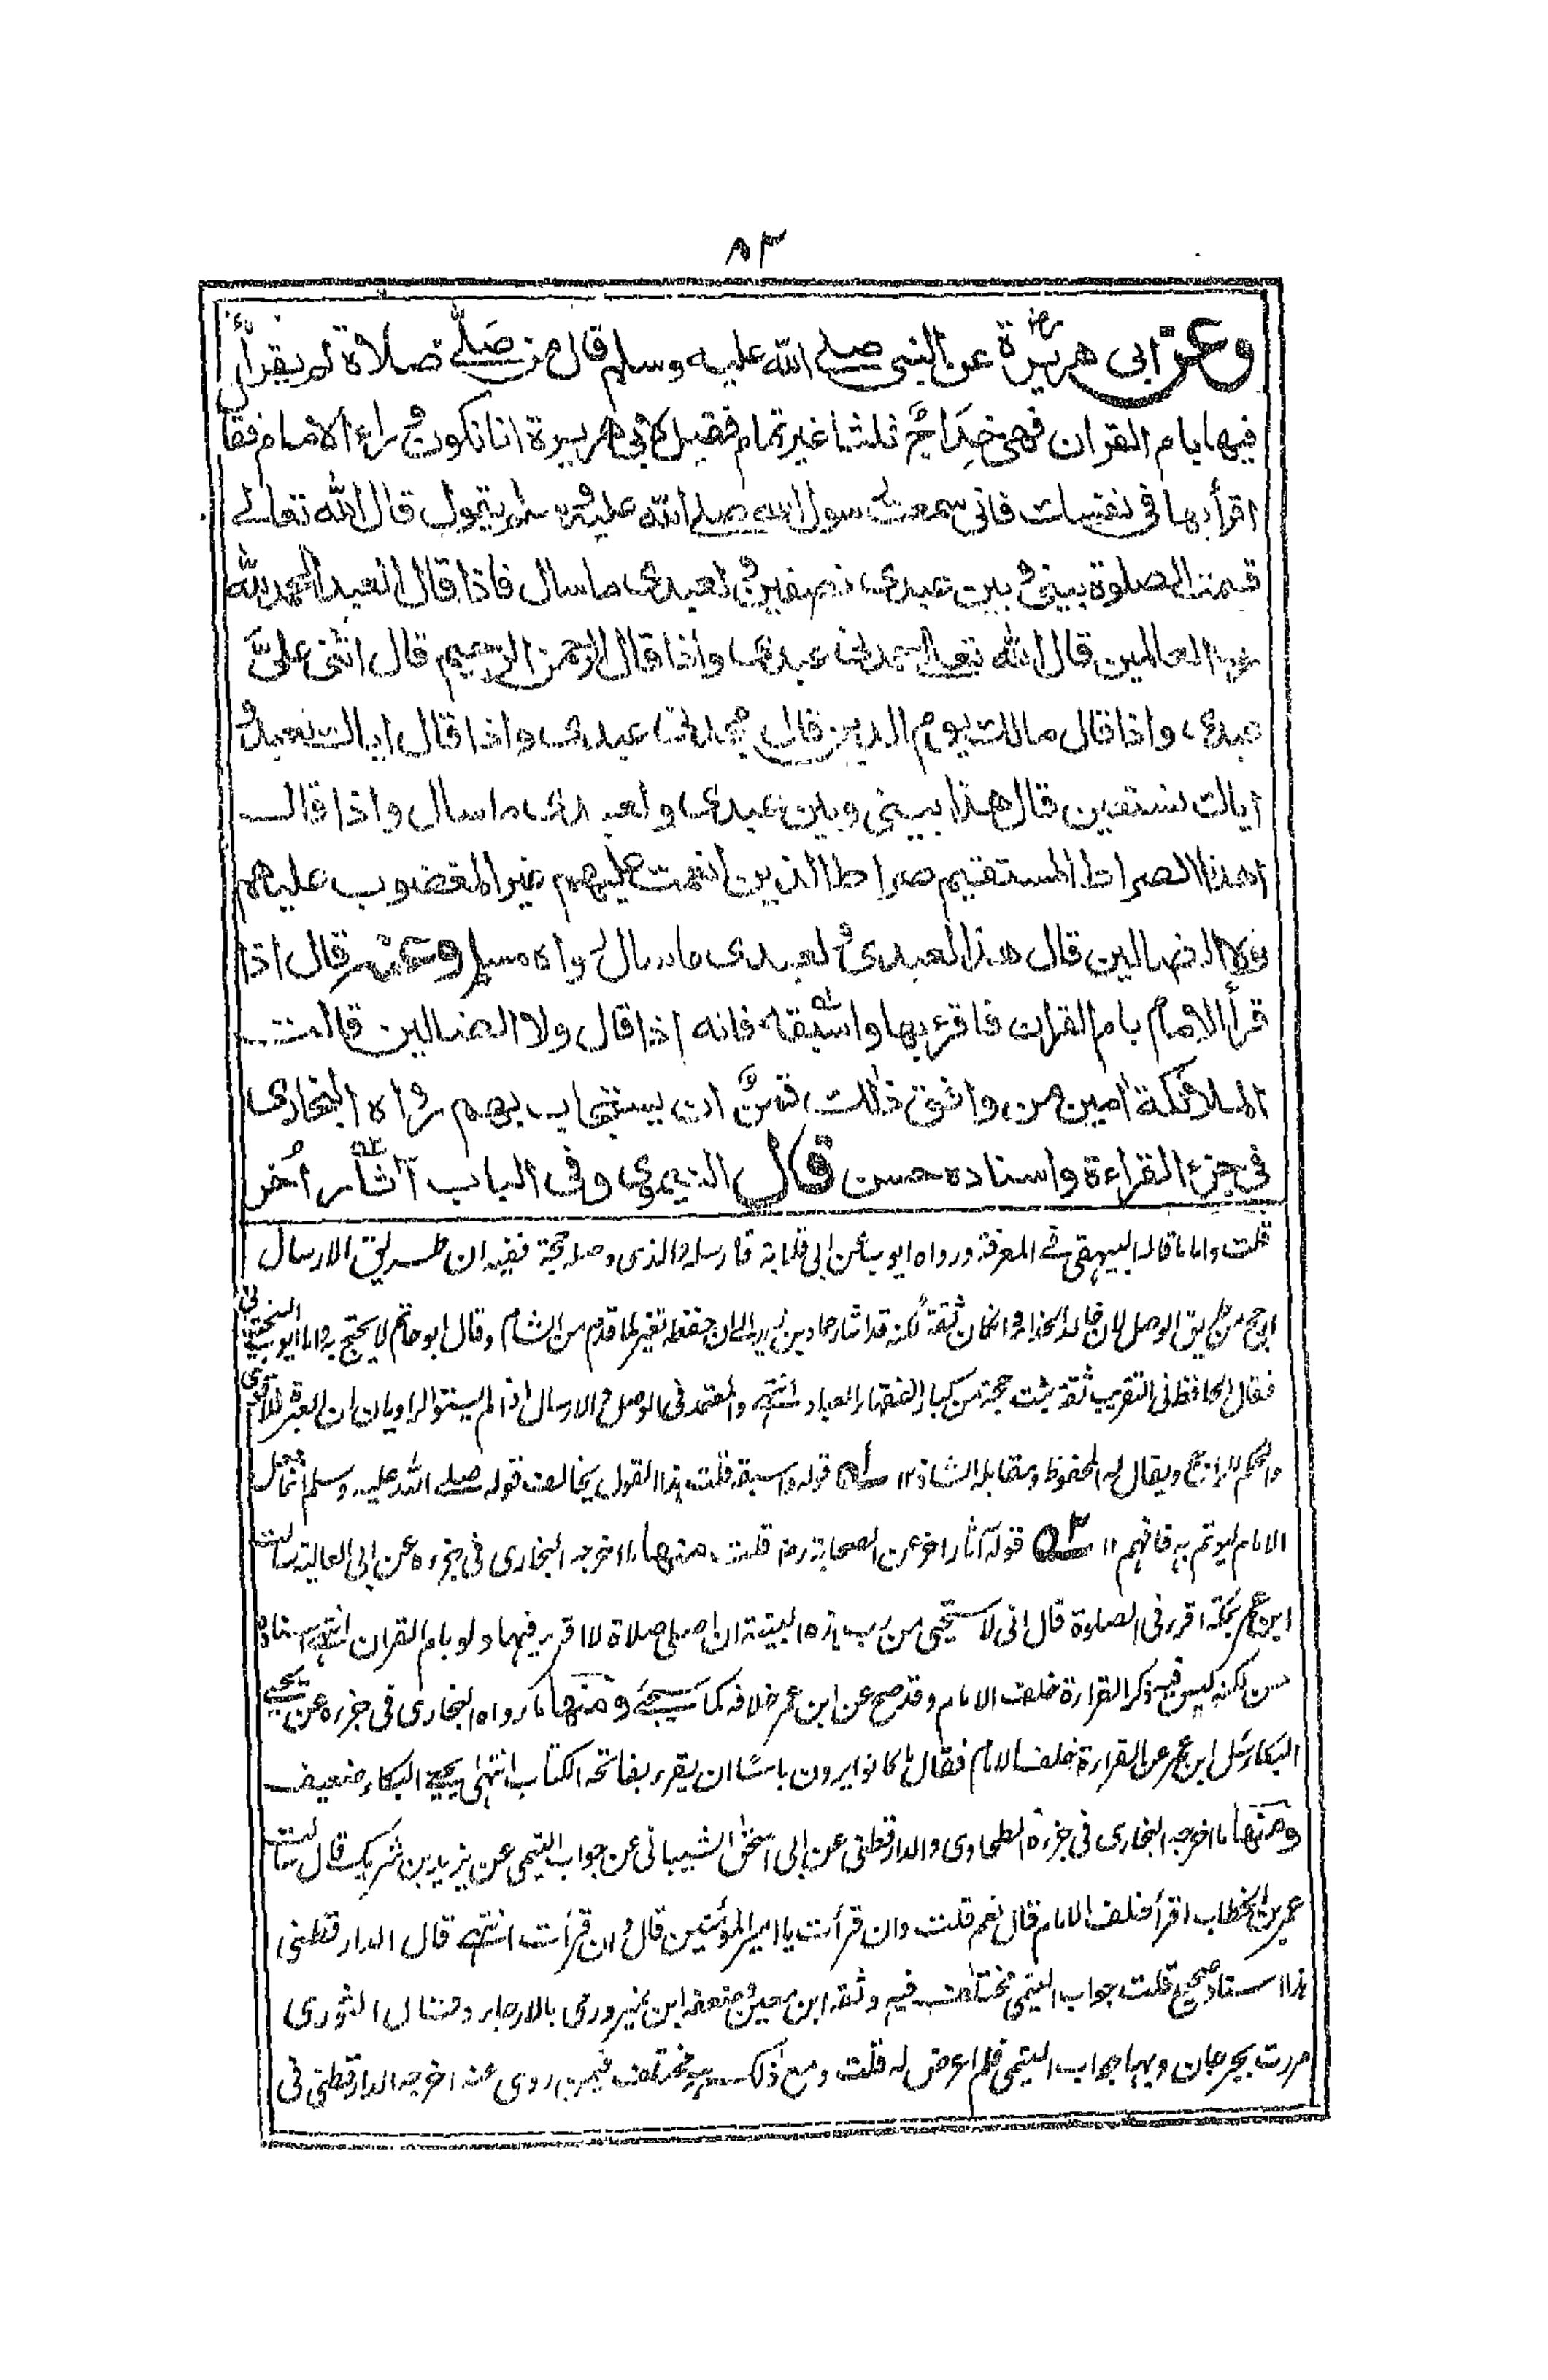 ٨٣
وعن ابى هريرة رضـ عن النبى صلے الله عليه وسلم قال من صَلّٰے صلاة لم يقرأ
فيها بام القران فهى خِدَاجٌ ثلثا غير تمام فقيل لابى هريرة انا نكون وراء الامام فقال
اقرأ بها فى نفسك فانى سمعت رسول الله صلے الله عليه وسلم يقول قال الله تعالے
قسمت الصلوة بينى وبين عبدى نصفين ولعبدى ما سال فاذا قال العبد الحمد لله
رب العالمين قال الله تعالے حمدنى عبدى واذا قال الرحمن الرحيم قال اثنى علىَّ
عبدى واذا قال مالك يوم الدين قال مجدنى عبدى واذا قال اياك نعبد و
اياك نستعين قال هذا بينى وبين عبدى ولعبدى ما سال واذا قال
اهدنا الصراط المستقيم صراط الذين انعمت عليهم غير المغضوب عليهم
ولا الضالين قال هذا لعبدى ولعبدى ما سال رواه مسلم وعنه قال اذا
قرأ الامام بام القران فاقرء بها واسبقه فانه اذا قال ولا الضالين قالت
الملائكة امين من وافق ذلك قمنٌ ان يستجاب بهم رواه البخارى
فى جزء القراءة واسناده حسن قال النيموى وفى الباب آثار اُخر
قلت واما ما قاله البيهقى فے المعرفة ورواه ايوب عن ابى قلابة فارسله والذى وصله حجة ففيه ان طريق الارسال
ارجح من طريق الوصل لان خالد الحذاء وان كان ثقة لكنه قد اشار حماد بن زيد الى ان حفظه تغير لما قدم من الشام وقال ابو حاتم لا يحتج به واما ايوب السختيانى
فقال الحافظ فى التقريب ثقة ثبت حجة من كبار الفقهاء العباد انتہے والمعتمد فى الوصل والارسال اذا لم يستو الراويان ان العبرة للاقوى
والحكم للارجح ويقال له المحفوظ ومقابله الشاذ ١٢ قوله واسبقه قلت هذا القول يخالف قوله صلے الله عليه وسلم انما جعل
الامام ليوتم به فافهم ١٢ قوله آثار اخر عن الصحابة رضـ قلت منها ما اخرجه البخارى فى جزءه عن ابى العالية سالت
ابن عمر بمكة اقرء فى الصلوة قال انى لاستحيى من رب هذه البنية ان اصلى صلاة لا اقرء فيها ولو بام القران انتہے اسناده
حسن لكنه ليس فيه ذكر القراءة خلف الامام وقد صح عن ابن عمر خلافه كما سيجئ ومنها ما رواه البخارى فى جزءه عن يحيے
البكاء سئل ابن عمر عن القراءة خلف الامام فقال ما كانوا يرون باسًا ان يقرء بفاتحة الكتاب انتهى يحيے البكاء ضعيف
ومنها ما اخرجه البخارى فى جزءه والطحاوى والدارقطنى عن ابى اسحٰق الشيبانى عن جواب التيمى عن يزيد بن شريك قال سالت
عمر بن الخطاب اقرأ خلف الامام قال نعم قلت وان قرأت يا امير المؤمنين قال وان قرأت انتہے قال الدارقطنى
هذا اسناد صحيح قلت جواب التيمى مختلف فيه وثقه ابن معين وضعفه ابن نمير ورمى بالارجاء وقال الثورى
مررت بجرجان وبها جواب التيمى فلم اعرض له قلت ومع ذلك هو مختلف فيمن روى عنه اخرجه الدارقطنى فى